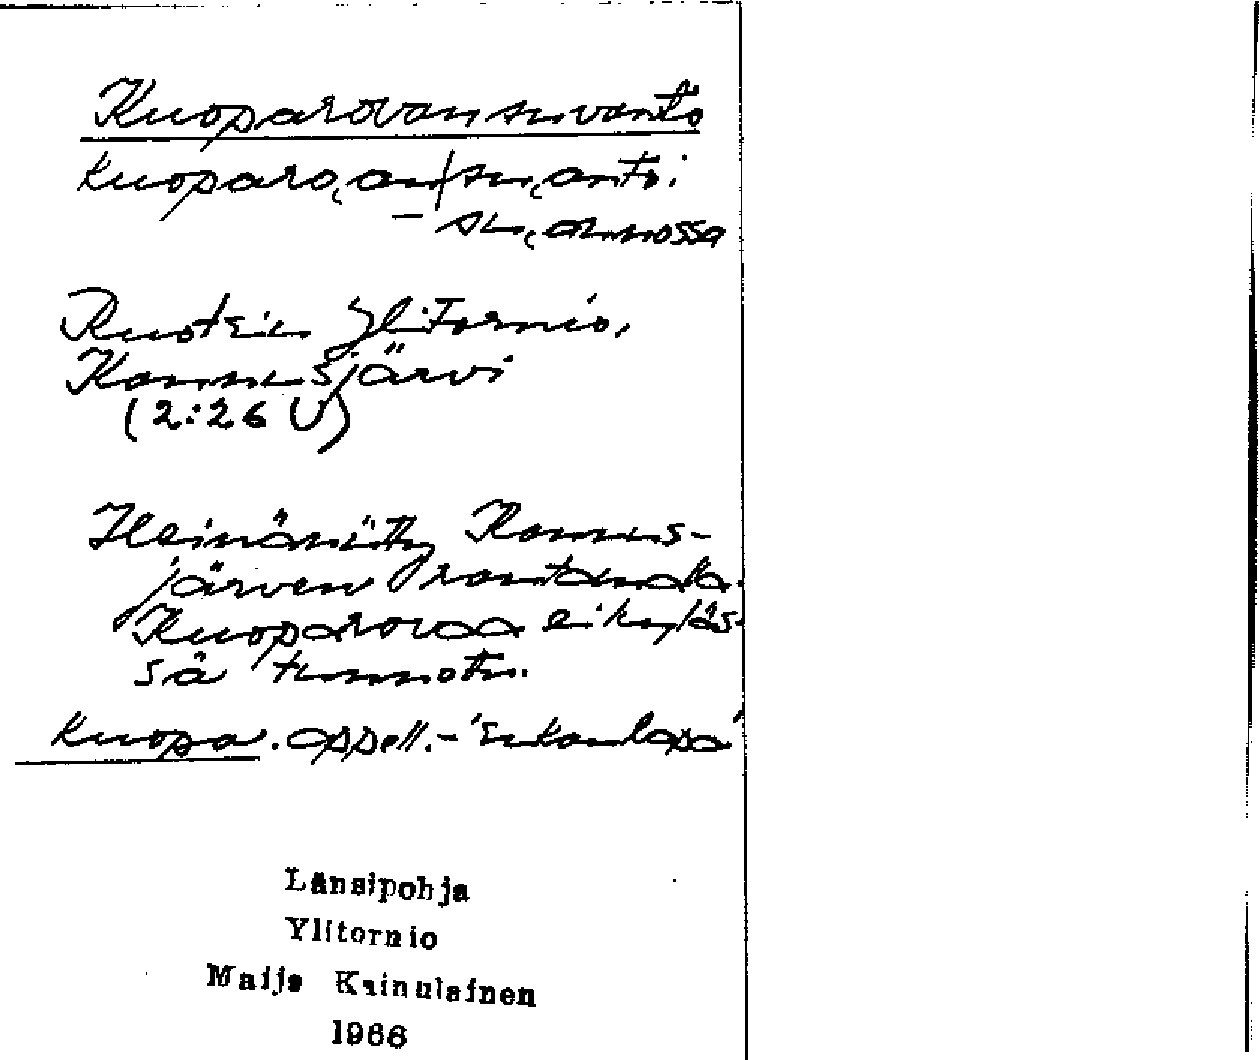 Kuoparovansuvanto
kuoparo̭an|sṷanto:
– sṷannossa
Ruotsin Ylitornio,
Kannusjärvi
(2:26 U)
Heinäniitty Kannus-
järven rantamalla.
Kuoparovaa ei kyläs-
sä tunnettu.
kuopa. appell. –
Länsipohja
Ylitornio
Maija Kainulainen
1966